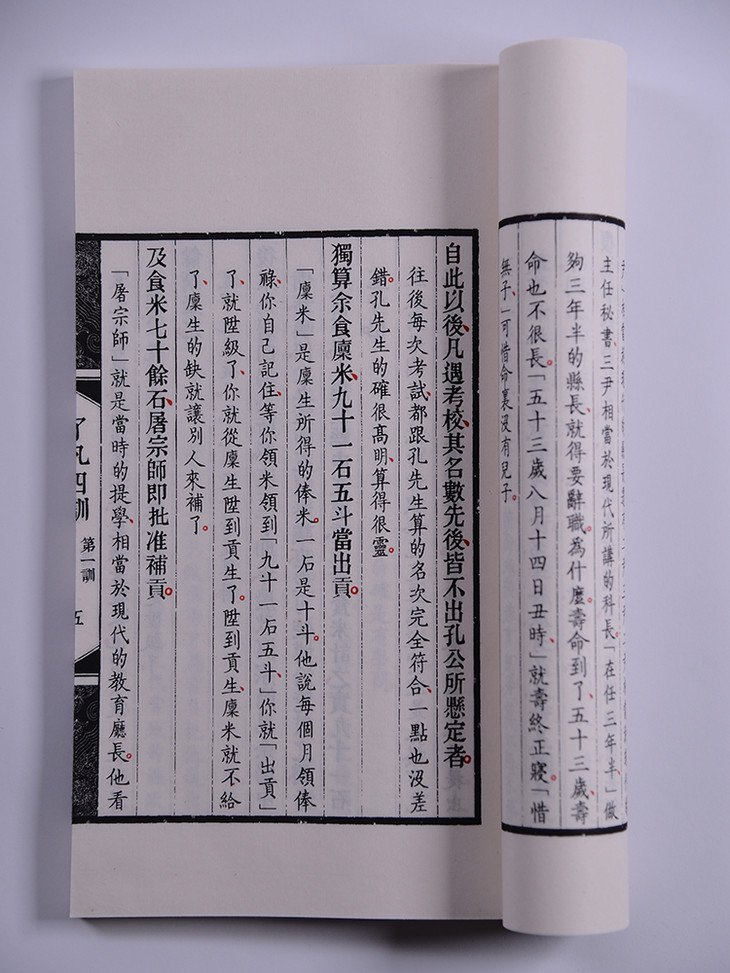 主任秘書、三尹相當於現代所講的科長。「在任三年半、」做
夠三年半的縣長、就得要辭職。為什麼。壽命到了、五十三歲、壽
命也不很長。「五十三歲八月十四日丑時、」就壽終正寢。「惜
無子、」可惜命裏沒有兒子。
自此以後、凡遇考校、其名數先後、皆不出孔公所懸定者。
往後每次考試、都跟孔先生算的名次完全符合、一點也沒差
錯。孔先生的確很高明、算得很靈。
獨算余食廩米、九十一石五斗當出貢。
「廩米」是廩生所得的俸米。一石是十斗。他說每個月領俸
祿、你自己記住、等你領米領到「九十一石五斗、」你就「出貢」
了、就陞級了、你就從廩生陞到貢生了。陞到貢生、廩米就不給
了、廩生的缺就讓別人來補了。
及食米七十餘石、屠宗師即批准補貢。
「屠宗師」就是當時的提學、相當於現代的教育廳長。他看
了凡四訓 第一訓 五